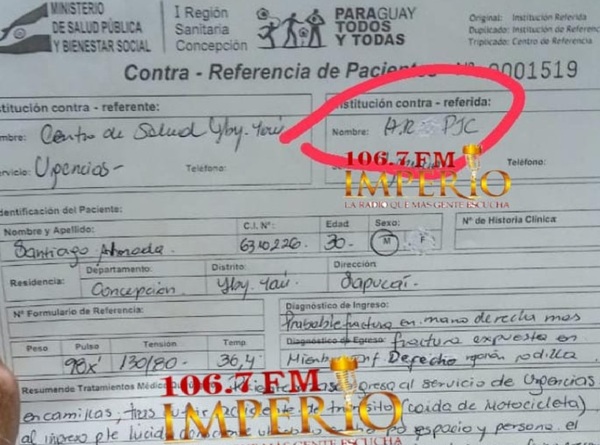 MINISTERIO
DE SALUD PÚBLICA
Y BIENESTAR SOCIAL
I Región
Sanitaria
Concepción
PARAGUAY
TODOS
Y TODAS
Original: Institución Referida
Duplicado: Institución de Referencia
Triplicado: Centro de Referencia
Contra - Referencia de Pacientes Nº 0001519
nstitución contra - referente:
Institución contra - referida:
mbre: Centro de Salud Yby-Yaú
Nombre: H.R PJC
ervicio: Urgencias-
Teléfono:
Teléfono:
106.7 FM
IMPERIO
LA RADIO QUE MAS GENTE ESCUCHA
dentificación del Paciente:
Nombre y Apellido:
C.I. Nº:
Edad
Sexo:
Nº de Historia Clínica:
Santiago
6310226
30-
M
F
Residencia:
Departamento:
Distrito:
Dirección:
Concepción
Yby-Yaú
Sapucaí.
Nº Formulario de Referencia:
Diagnóstico de Ingreso:
Probable fractura en mano derecha mas
Peso
Pulso
Tensión
Temp.
Diagnóstico de Egreso: fractura expuesta en
98x'
130/80-
36,4
Miembro Inf Derecho region rodilla.
Resumende Tratamientos
ingreso al servicio de Urgencias
106.7 FM
IMPERIO
en camillas, tras
de tránsito (caida de Motocicleta)
al ingreso pte lucido
espacio y persona. el
LA RADIO QUE MAS GENTE ESCUCHA